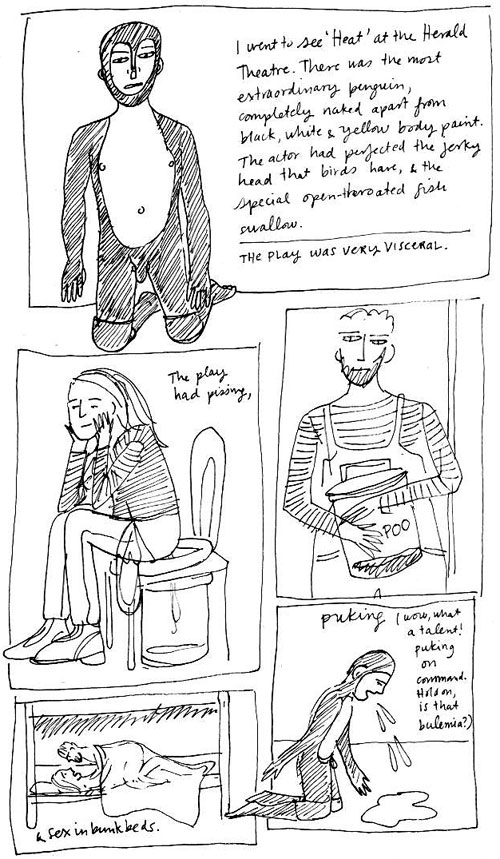 I went to see 'Heat' at the Herald
Theatre. There was the most
extraordinary penguin,
completely naked apart from
black, white & yellow body paint.
The actor had perfected the jerky
head that birds have, & the
special open-throated fish
swallow.
THE PLAY WAS VERY VISCERAL.
The play
had pissing,
POO
puking (wow, what
a talent!
puking
on
command.
Hold on,
is that
bulemia?)
& sex in bunk beds.